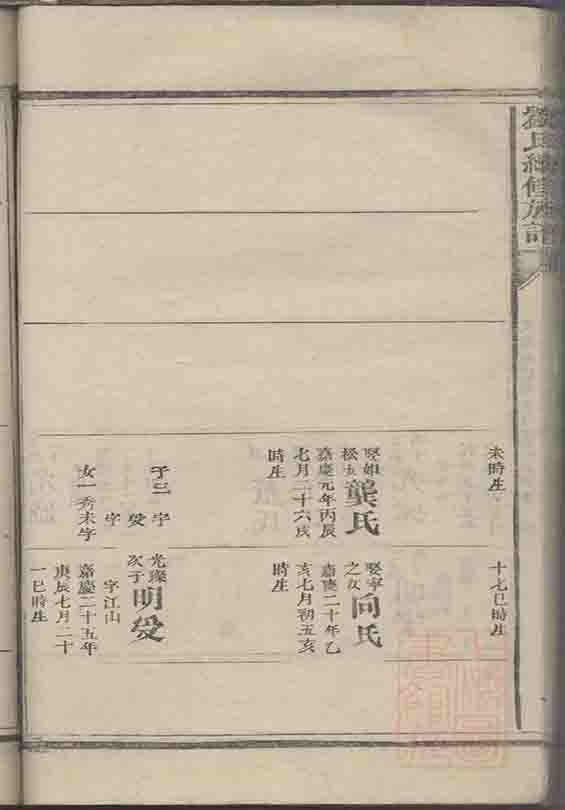 氏續修族譜
未時生
松女
龔氏
嘉慶元年丙辰
七月二十六戌
時生
字
受
字
女一秀未字
十七巳時生
娶寧
之女
向氏
嘉慶二十年乙
亥七月初五亥
時生
光璨
次子
明受
字江山
嘉慶二十五年
庚辰七月二十
一巳時生